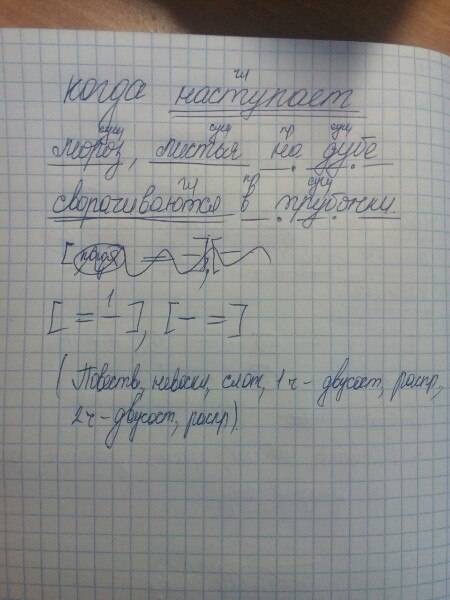 гл
когда наступает
сущ сущ пр сущ
мороз, листья на дубе
гл пр сущ
сворачиваются в трубочки.
[когда = –], [–
[= –], [– =]
(Повеств, невоскл, слож, 1ч – двусост, распр,
2ч – двусост, распр).